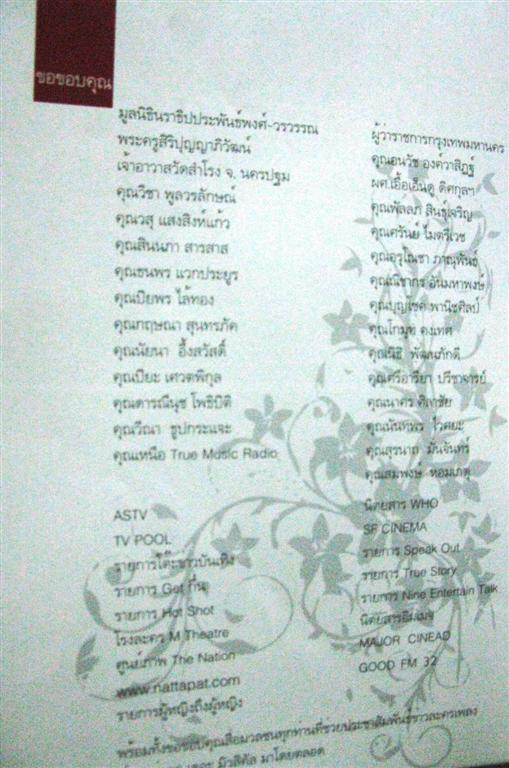 ขอขอบคุณ
มูลนิธินราธิปประพันธ์พงศ์-วรวรรณ
พระครูสิริปุญญาภิวัฒน์
เจ้าอาวาสวัดสำโรง จ. นครปฐม
คุณวิชา พูลวรลักษณ์
คุณวสุ แสงสิงห์แก้ว
คุณสินนภา สารสาส
คุณธนพร แวกประยูร
คุณปิยพร ไล้ทอง
คุณกฤษณา สุนทรภัค
คุณนัยนา อึ้งสวัสดิ์
คุณปิยะ เศวตพิกุล
คุณดารณีนุช โพธิปิติ
คุณวีณา ธูปกระแจะ
คุณเหนือ True Music Radio
ASTV
TV POOL
รายการโต๊ะข่าวบันเทิง
รายการ Get กึ๋น
รายการ Hot Shot
โรงละคร M Theatre
ศูนย์ภาพ The Nation
www.nattapat.com
รายการผู้หญิงถึงผู้หญิง
ผู้ว่าราชการกรุงเทพมหานคร
คุณอนวัช องค์วาสิฏฐ์
ผศ.เอื้อเอ็นดู ดิศกุลฯ
คุณพัลลภา สินธุ์เจริญ
คุณศรันย์ ไมตรีเวช
คุณอุรุโณชา ภาณุพันธุ์
คุณณิชากร อินมหาพงษ์
คุณบุญโชค พานิชศิลป์
คุณโกมุท คงเทศ
คุณนิธิ พัฒนภักดี
คุณศรีอาริยา ปรีชาจารย์
คุณนาคร ศิลาชัย
คุณนันทพร ไวศยะ
คุณสุรนาถ มั่นจันทร์
คุณสมพงษ์ หอมเกตุ
นิตยสาร WHO
SF CINEMA
รายการ Speak Out
รายการ True Story
รายการ Nine Entertain Talk
นิตยสารอิมเมจ
MAJOR CINEAD
GOOD FM 32
พร้อมทั้งขอขอบคุณสื่อมวลชนทุกท่านที่ช่วยประชาสัมพันธ์ข่าวละครเพลง
มิวสิคัล มาโดยตลอด